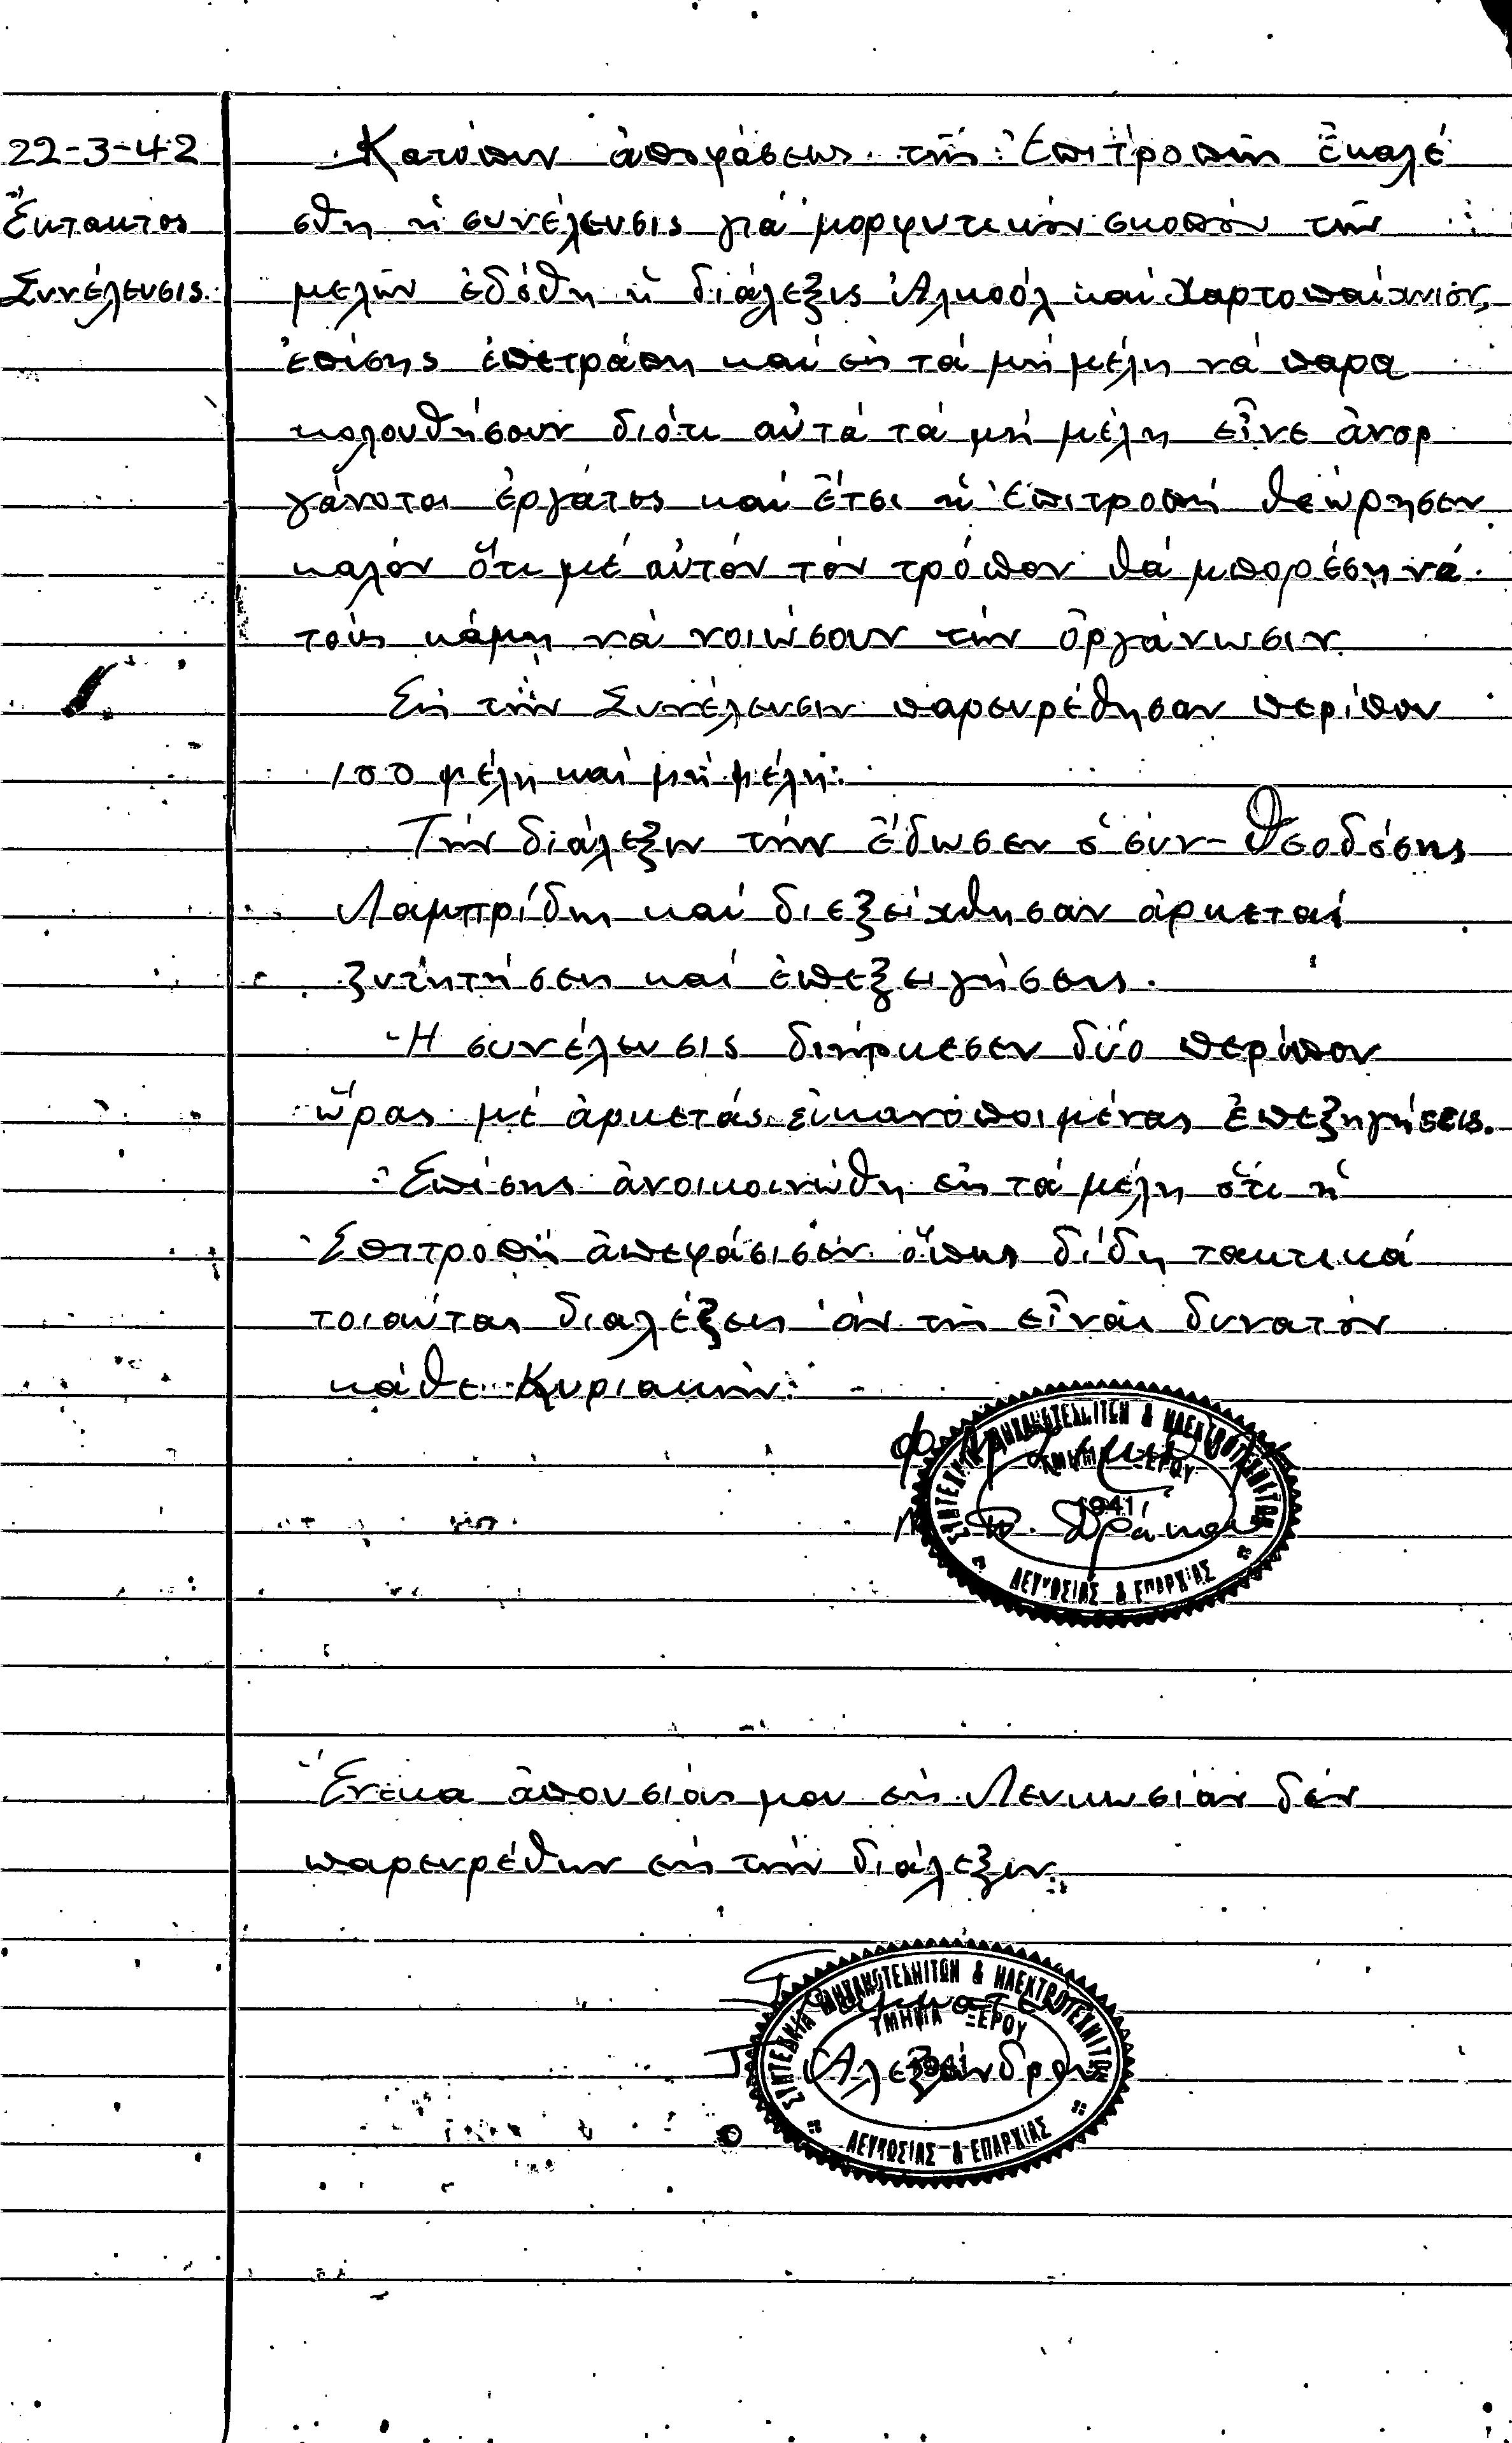 22-3-42
Ἔκτακτος
Συνέλευσις.
Κατόπιν ἀποφάσεως τῆς Ἐπιτροπῆς ἐκαλέ
σθη ἡ συνέλευσις γιά μορφωτικόν σκοπόν τῶν
μελῶν ἐδόθη ἡ διάλεξις Ἀλκοόλ καί Χαρτοπαίχνιον,
ἐπίσης ἐπετράπη καί εἰς τά μή μέλη νά παρα
κολουθήσουν διότι αὐτά τά μή μέλη εἶνε ἀνορ
γάνοτοι ἐργάτες καί ἔτσι ἡ Ἐπιτροπή θεώρησεν
καλόν ὅτι μέ αὐτόν τόν τρόπον θά μπορέση νά
τούς κάμη νά νοιώσουν τήν ὀργάνωσιν.
Εἰς τήν Συνέλευσιν παρευρέθησαν περίπου
100 μέλη καί μή μέλη.
Τήν διάλεξιν τήν ἔδωσεν ὁ συν- Θεοδόσης
Λαμπρίδης καί διεξείχθησαν ἀρκεταί
ζυτητήσεις καί ἐπεξειγήσεις.
Ἡ συνέλευσις διήρκεσεν δύο περίπου
ὥρας μέ ἀρκετάς εἱκανοποιμένας ἐπεξηγήσεις.
Ἐπίσης ἀνοικοινώθη εἰς τά μέλη ὅτι ἡ
Ἐπιτροπή ἀπεφάσισεν ὅπως δίδη τακτικά
τοιαύτας διαλέξεις ἄν τῆς εἶναι δυνατόν
κάθε Κυριακήν.
ΣΥΝΤΕΧΝΙΑ ΜΗΧΑΝΟΤΕΧΝΙΤΩΝ & ΗΛΕΚΤΡΟΤΕΧΝΙΤΩΝ
ΤΜΗΜΑ ΞΕΡΟΥ
1941
Δράκου
ΛΕΥΚΩΣΙΑΣ & ΕΠΑΡΧΙΑΣ
Ἕνεκα ἀπουσίας μου εἰς Λευκωσίαν δέν
παρευρέθην εἰς τήν διάλεξιν.
ΣΥΝΤΕΧΝΙΑ ΜΗΧΑΝΟΤΕΧΝΙΤΩΝ & ΗΛΕΚΤΡΟΤΕΧΝΙΤΩΝ
ΤΜΗΜΑ ΞΕΡΟΥ
1941
Ἀλεξάνδρου
ΛΕΥΚΩΣΙΑΣ & ΕΠΑΡΧΙΑΣ